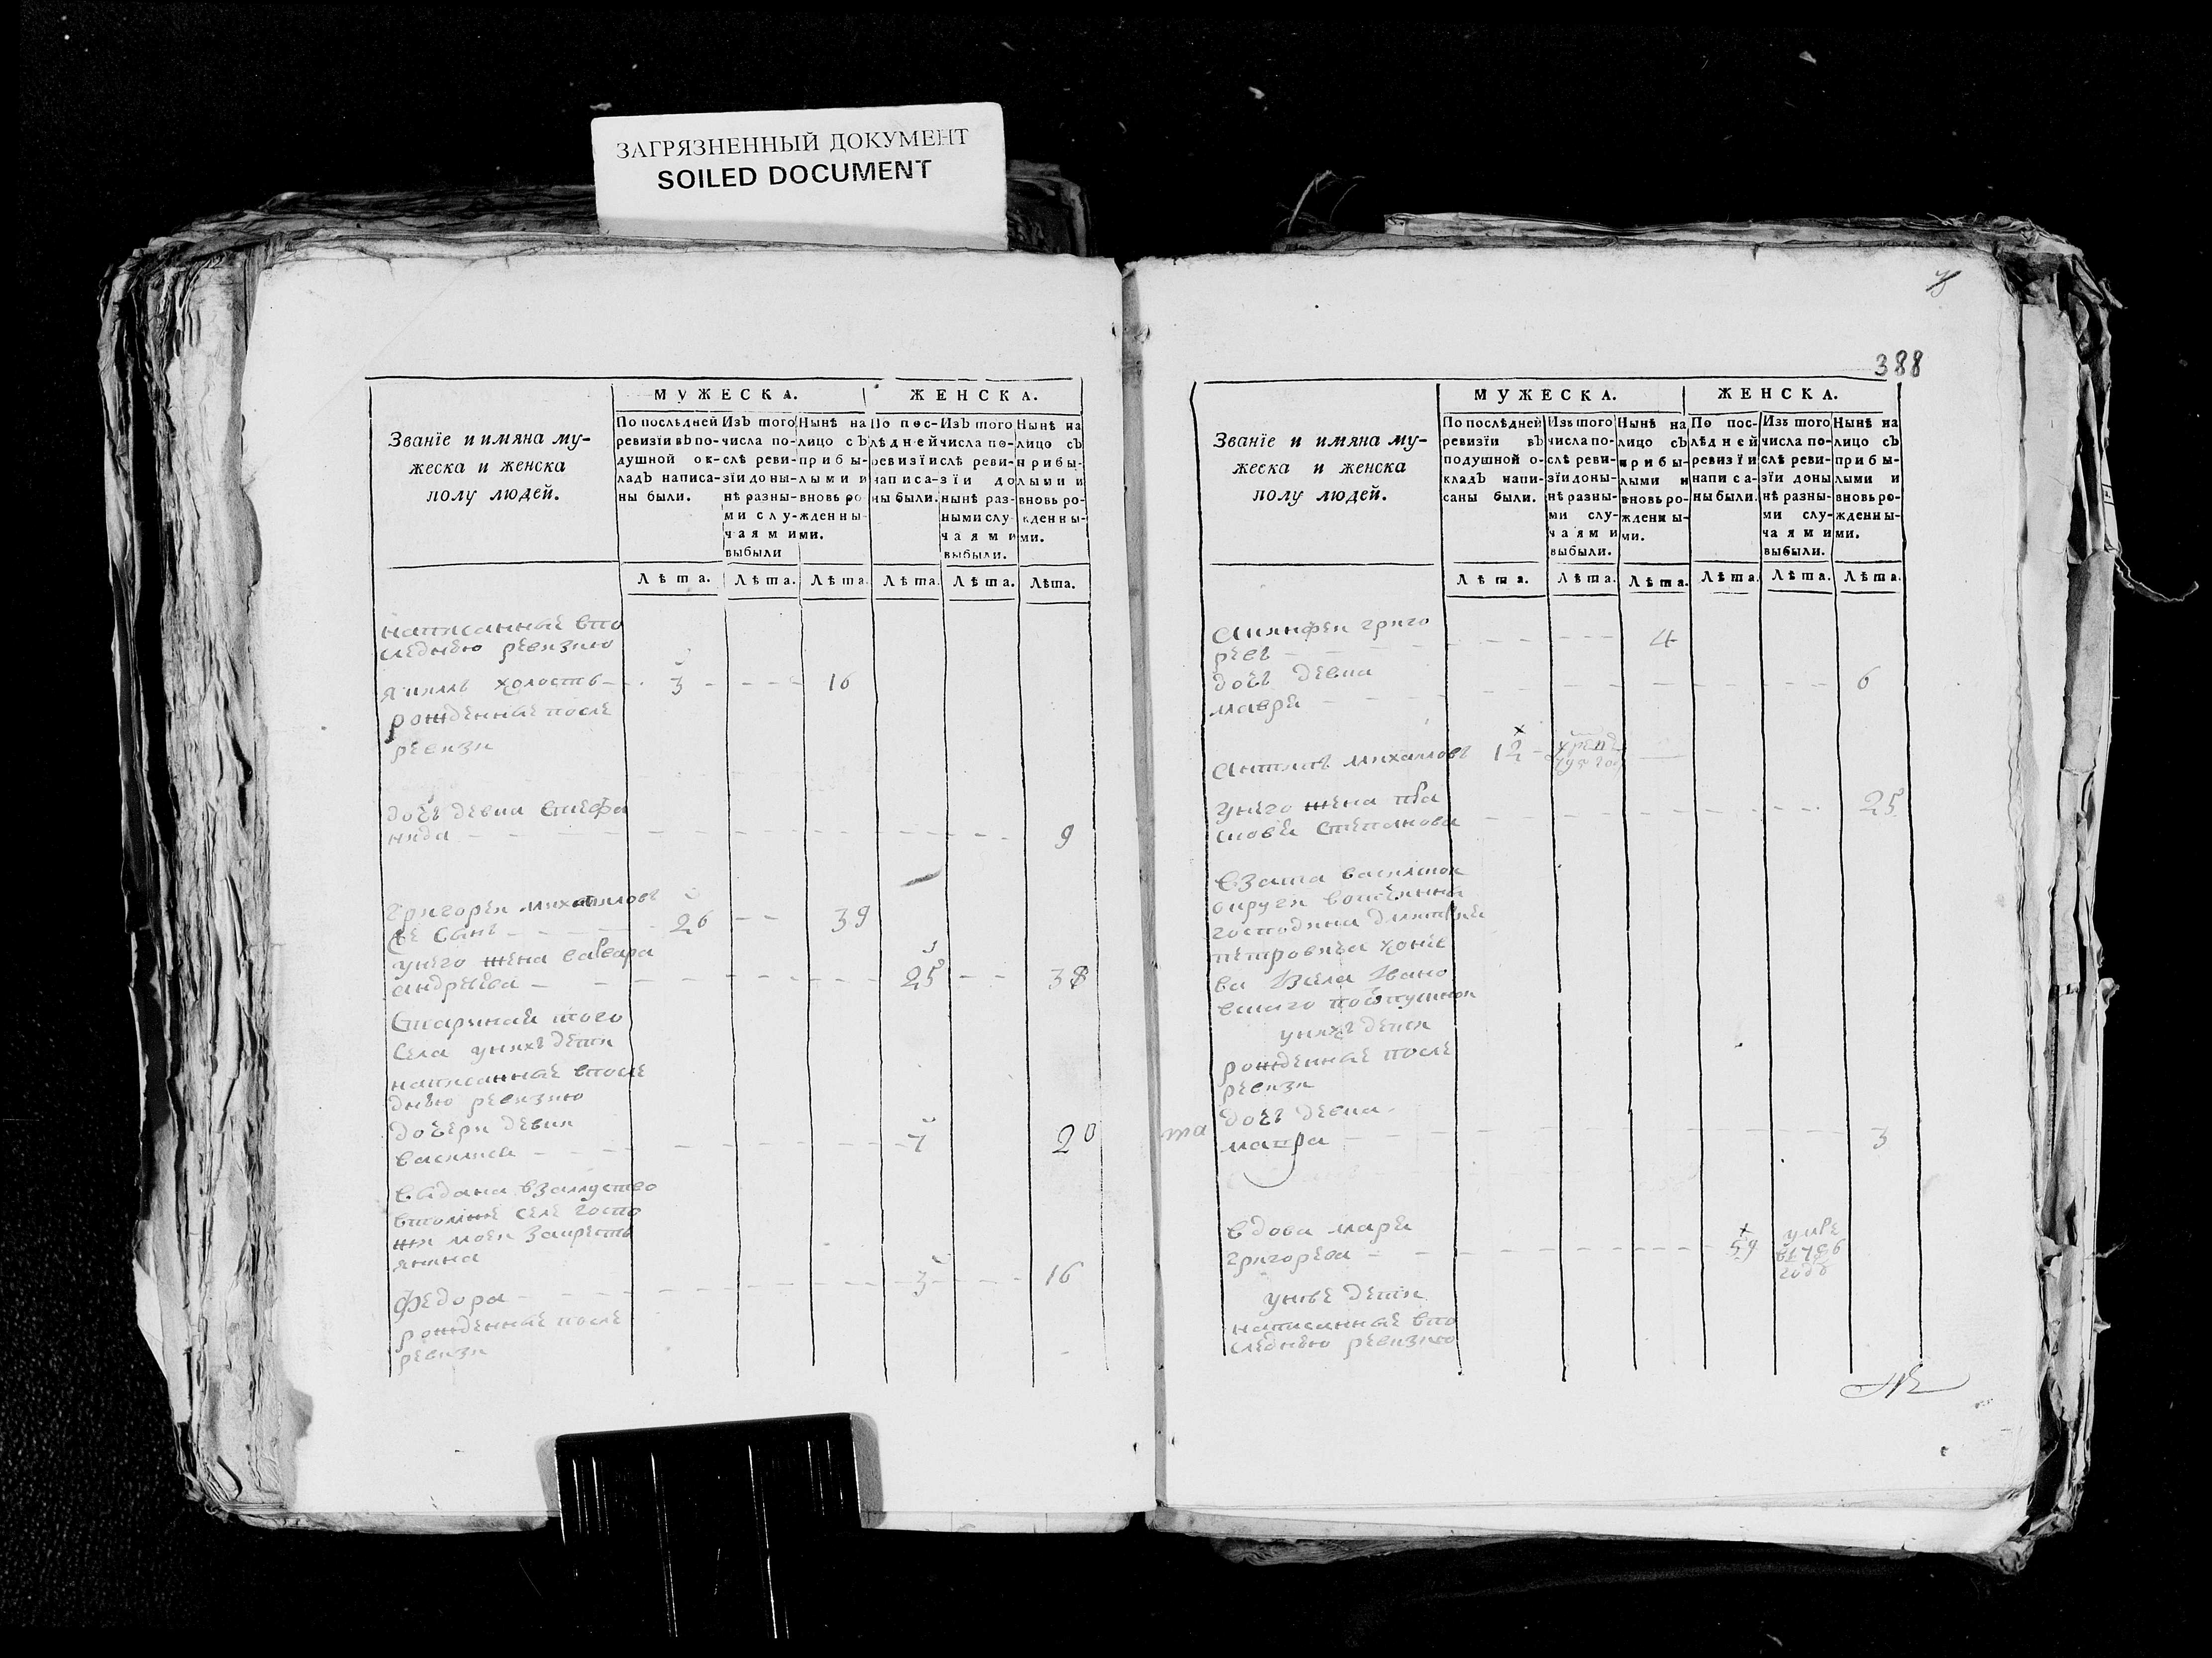 ЗАГРЯЗНЕННЫЙ ДОКУМЕНТ
SOILED DOCUMENT
Званїе и имяна му-
жеска и женска
полу людей.
МУЖЕСКА.
ЖЕНСКА.
По послѣдней
ревизїи въ по-
душной ок-
ладъ написа-
ны были.
Изъ того
числа по-
слѣ реви-
зїи до ны-
нѣ разны-
ми слу-
чаями
выбыли
Нынѣ на
лицо съ
прибы-
лыми и
вновь ро-
жденны-
ми.
По пос-
лѣдней
ревизїи
написа-
ны были.
Изъ того
числа по-
слѣ реви-
зїи до
нынѣ раз-
ными слу-
чаями
выбыли.
Нынѣ на
лицо съ
прибы-
лыми и
вновь ро-
жденны-
ми.
Лѣта. Лѣта. Лѣта. Лѣта. Лѣта. Лѣта.
написанные впо
следнѣю ревизию
якимъ холостъ 3 16
рожденные после
ревизи
дочь девка степа
нида 9
григореи михаиловъ
ѣе сынъ 26 39
унего жена варвара
андреева 25 38
старинная того
села унихъ дети
написанные впосле
днѣю ревизию
дочери девки
василиса 7 20
выдана взамуство
втомже селе госпо
жи моеи закресть
янина
федора 3 16
рожденные после
ревизи
388
Званїе и имяна му-
жеска и женска
полу людей.
МУЖЕСКА.
ЖЕНСКА.
По послѣдней
ревизїи въ
подушной о-
кладъ напи-
саны были.
Изъ того
числа по-
слѣ реви-
зїи до ны-
нѣ разны-
ми слу-
чаями
выбыли.
Нынѣ на
лицо съ
прибы-
лыми и
вновь ро-
жденны-
ми.
По пос-
лѣдней
ревизїи
написа-
ны были.
Изъ того
числа по-
слѣ реви-
зїи до ны
нѣ разны-
ми слу-
чаями
выбыли.
Нынѣ на
лицо съ
прибы-
лыми и
вновь ро-
жденны-
ми.
Лѣта. Лѣта. Лѣта. Лѣта. Лѣта. Лѣта.
григо
ревъ 4
дочь девка
мавра 6
антипъ михаиловъ 12
унего жена пра
сковья степанова 25
взята
округи вотчины
господина дмитрия
петровича
ва села Ивано
вскаго поотпускнои
унихъ дети
рожденные после
ревизи
дочь девка
матра 3
вдова марья
григорева 59 умре
в1796
годѣ
унѣе дети
написанные впо
следнѣю ревизию